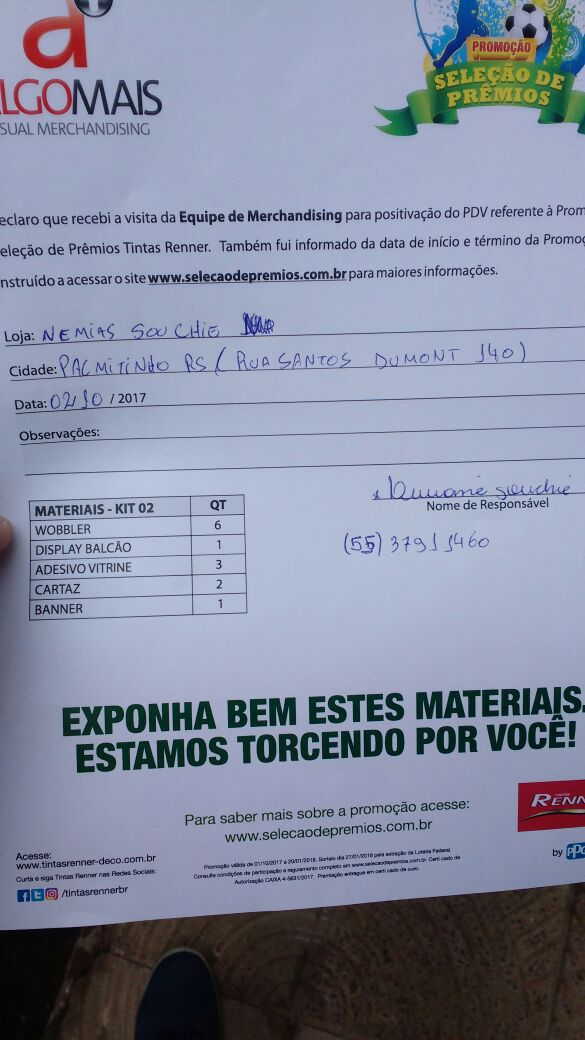 LGOMAIS
SUAL MERCHANDISING
PROMOÇÃO
SELEÇÃO DE
PRÊMIOS
eclaro que recebi a visita da Equipe de Merchandising para positivação do PDV referente à Prom
eleção de Prêmios Tintas Renner. Também fui informado da data de início e término da Promoç
nstruído a acessar o site www.selecaodepremios.com.br para maiores informações.
Loja: NEMIAS SOUCHIE
Cidade: PALMITINHO RS (RUA SANTOS DUMONT 140)
Data: 02/10 / 2017
Observações:
Nome de Responsável
(55) 3791 1460
MATERIAIS - KIT 02 QT
WOBBLER 6
DISPLAY BALCÃO 1
ADESIVO VITRINE 3
CARTAZ 2
BANNER 1
EXPONHA BEM ESTES MATERIAIS.
ESTAMOS TORCENDO POR VOCÊ!
Para saber mais sobre a promoção acesse:
www.selecaodepremios.com.br
RENN
by PPG
Acesse:
www.tintasrenner-deco.com.br
Curta e siga Tintas Renner nas Redes Sociais:
/tintasrennerbr
Promoção válida de 01/10/2017 a 20/01/2018. Sorteio dia 27/01/2018 pela extração da Loteria Federal.
Consulte condições de participação e regulamento completo em www.selecaodepremios.com.br. Certi cado de
Autorização CAIXA 4-5631/2017. Premiação entregue em certi cado de ouro.